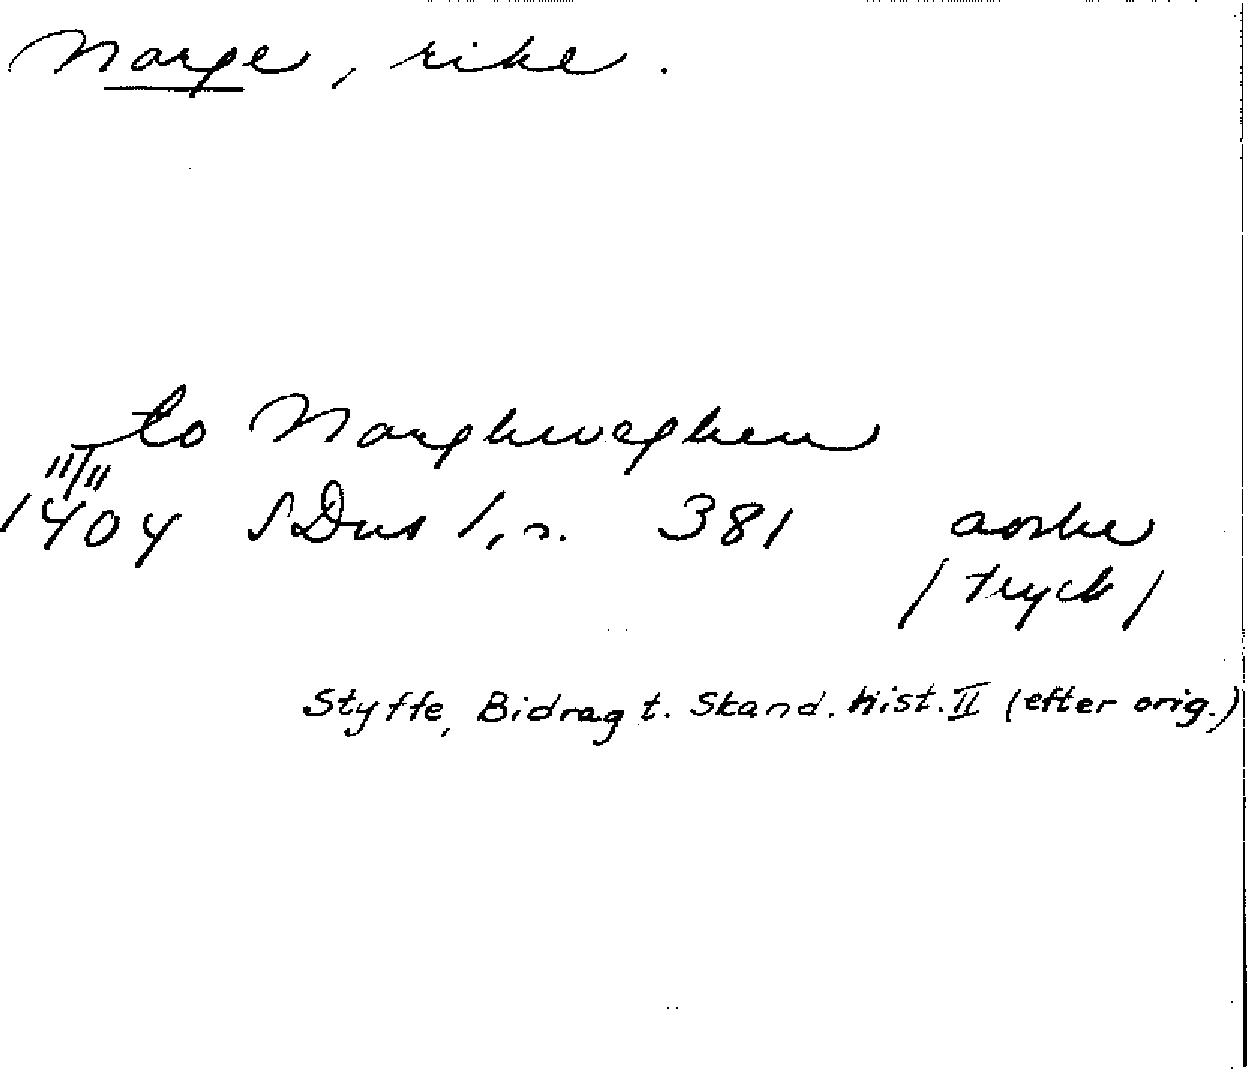 Norge, rike.
to Norghweghen
11/11
1404 SDns 1, s. 381 avskr
/ tryck /
Styffe, Bidrag t. Skand. hist. II (efter orig.)